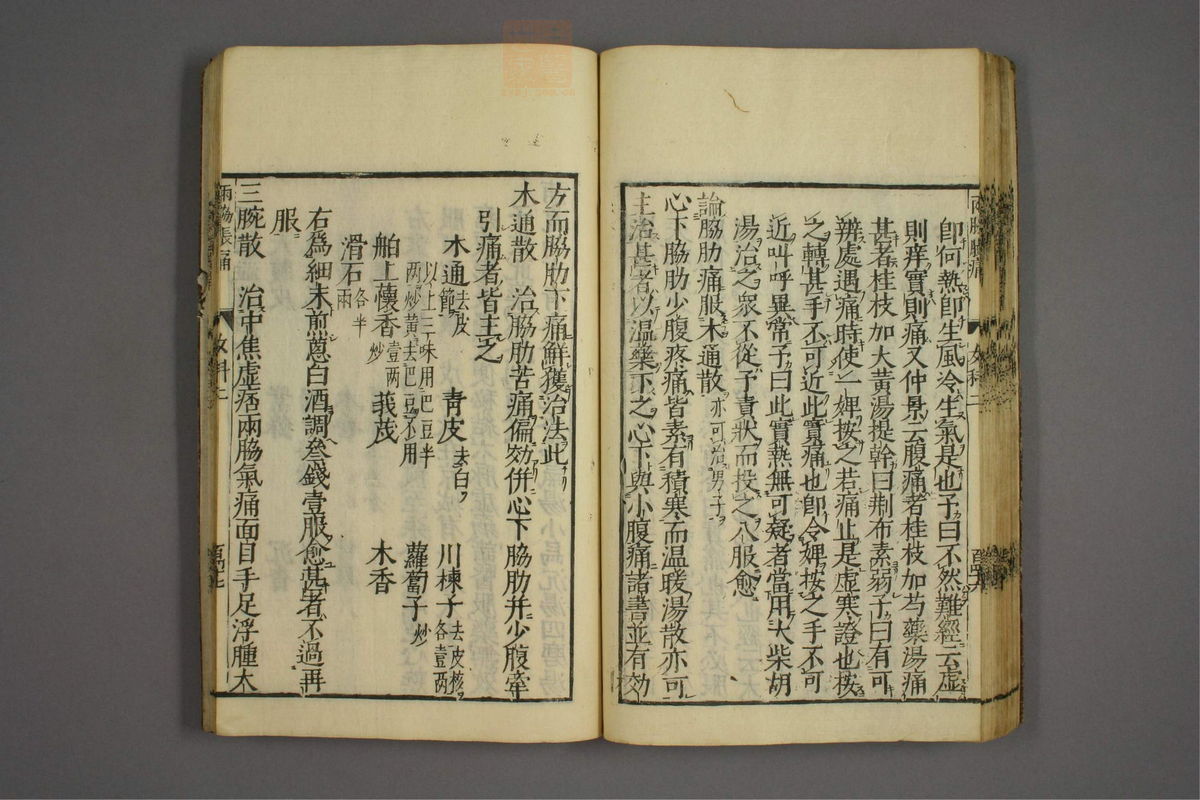 即何熱即生風冷生氣是也予曰不然難經云虛
則痒實則痛又仲景云腹痛者桂枝加芍藥湯痛
甚者桂枝加大黃湯提幹曰荆布素弱予曰有可
辨處遇痛時使一婢按之若痛止是虛寒證也按
之轉甚手不可近此實痛也即令婢按之手不可
近叫呼異常予曰此實熱無可疑者當用大柴胡
湯治之衆不從予責狀而投之八服愈
論脇肋痛服木通散亦可治男子
心下脇肋少腹疼痛皆素有積寒而溫暖湯散亦可
主治甚者以溫藥下之心下與小腹痛諸書並有効
方而脇肋下痛鮮獲治法此
木通散 治脇肋苦痛偏効併心下脇肋并少腹牽
引痛者皆主之
木通去皮節 青皮去白 川楝子去皮核各壹兩
以上三味用巴豆半兩炒黃去巴豆不用 蘿蔔子炒
舶上懷香壹兩炒 莪茂 木香
滑石各半兩
右爲細末煎蔥白酒調叁錢壹服愈甚者不過再
服
三脘散 治中焦虛痞兩脇氣痛面目手足浮腫大
兩脇脹痛
女科二